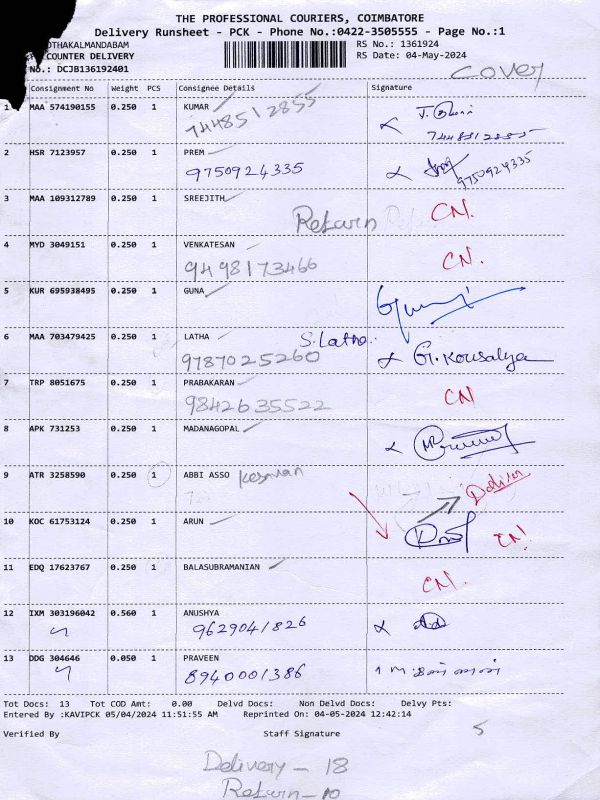 THE PROFESSIONAL COURIERS, COIMBATORE
Delivery Runsheet - PCK - Phone No.:0422-3505555 - Page No.:1
OTHAKALMANDABAM RS No.: 1361924
COUNTER DELIVERY RS Date: 04-May-2024
No.: DCJB136192401 COVER
Consignment No Weight PCS Consignee Details Signature
1 MAA 574190155 0.250 1 KUMAR
7448512855 7448512855
2 HSR 7123957 0.250 1 PREM
9750924335 9750924335
3 MAA 109312789 0.250 1 SREEJITH
Return CN.
4 MYD 3049151 0.250 1 VENKATESAN
9498173466 CN.
5 KUR 695938495 0.250 1 GUNA
6 MAA 703479425 0.250 1 LATHA S. Latha.
9787025260 G. Kousalya
7 TRP 8051675 0.250 1 PRABAKARAN
9842635522 CN
8 APK 731253 0.250 1 MADANAGOPAL
9 ATR 3258590 0.250 1 ABBI ASSO
10 KOC 61753124 0.250 1 ARUN CN.
11 EDQ 17623767 0.250 1 BALASUBRAMANIAN
CN.
12 IXM 303196042 0.560 1 ANUSHYA
9629041826
13 DDG 304646 0.050 1 PRAVEEN
8940001386
Tot Docs: 13 Tot COD Amt: 0.00 Delvd Docs: Non Delvd Docs: Delvy Pts:
Entered By :KAVIPCK 05/04/2024 11:51:55 AM Reprinted On: 04-05-2024 12:42:14
Verified By Staff Signature 5
Delivery - 18
Return - 10